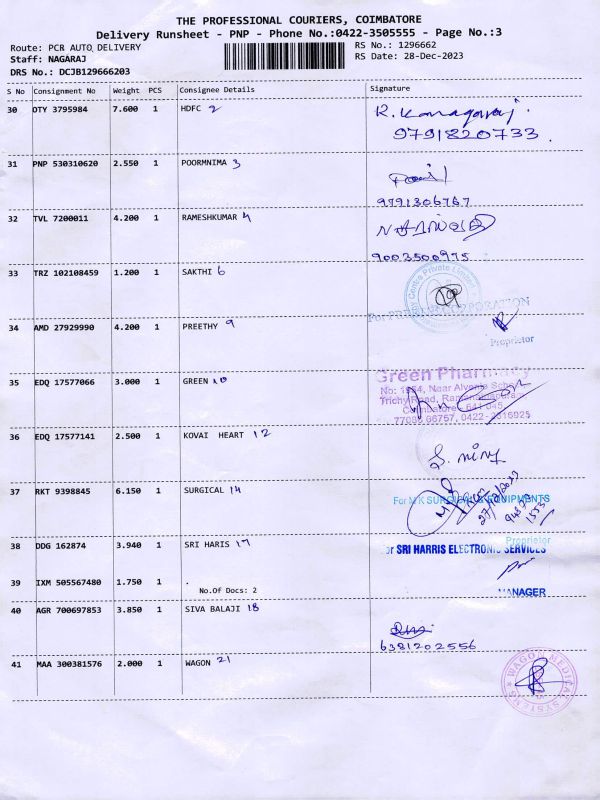 THE PROFESSIONAL COURIERS, COIMBATORE
Delivery Runsheet - PNP - Phone No.:0422-3505555 - Page No.:3
Route: PCR AUTO DELIVERY RS No.: 1296662
Staff: NAGARAJ RS Date: 28-Dec-2023
DRS No.: DCJB129666203
S No Consignment No Weight PCS Consignee Details Signature
30 DTY 3795984 7.600 1 HDFC 2 R. Kanagaraj
9791820733.
31 PNP 530310620 2.550 1 POORMNIMA 3
9791306767
32 TVL 7200011 4.200 1 RAMESHKUMAR 4
9003500975
33 TRZ 102108459 1.200 1 SAKTHI 6
Centre Private Limited
For CORPORATION
34 AMD 27929990 4.200 1 PREETHY 9
Proprietor
35 EDQ 17577066 3.000 1 GREEN 10 Green Pharmacy
No: Near Alvernia School
Trichy Road, Ramanathapuram
Coimbatore - 641 045
36 EDQ 17577141 2.500 1 KOVAI HEART 12
37 RKT 9398845 6.150 1 SURGICAL 14 For M K SURGICAL EQUIPMENTS
27/12/2023
Proprietor
38 DDG 162874 3.940 1 SRI HARIS 17 For SRI HARRIS ELECTRONIC SERVICES
39 IXM 505567480 1.750 1 .
No.Of Docs: 2 MANAGER
40 AGR 700697853 3.850 1 SIVA BALAJI 18
6381202556
41 MAA 300381576 2.000 1 WAGON 21 WAGON MEDICAL SYSTEMS